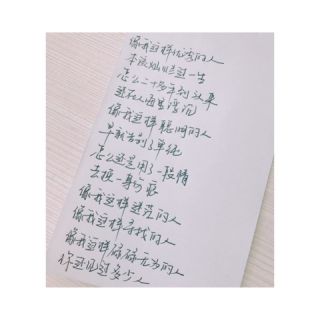 像我这样优秀的人
本该灿烂过一生
怎么二十多年到头来
还在人海里浮沉
像我这样聪明的人
早就告别了单纯
怎么还是用了一段情
去换一身伤痕
像我这样迷茫的人
像我这样寻找的人
像我这样碌碌无为的人
你还见过多少人